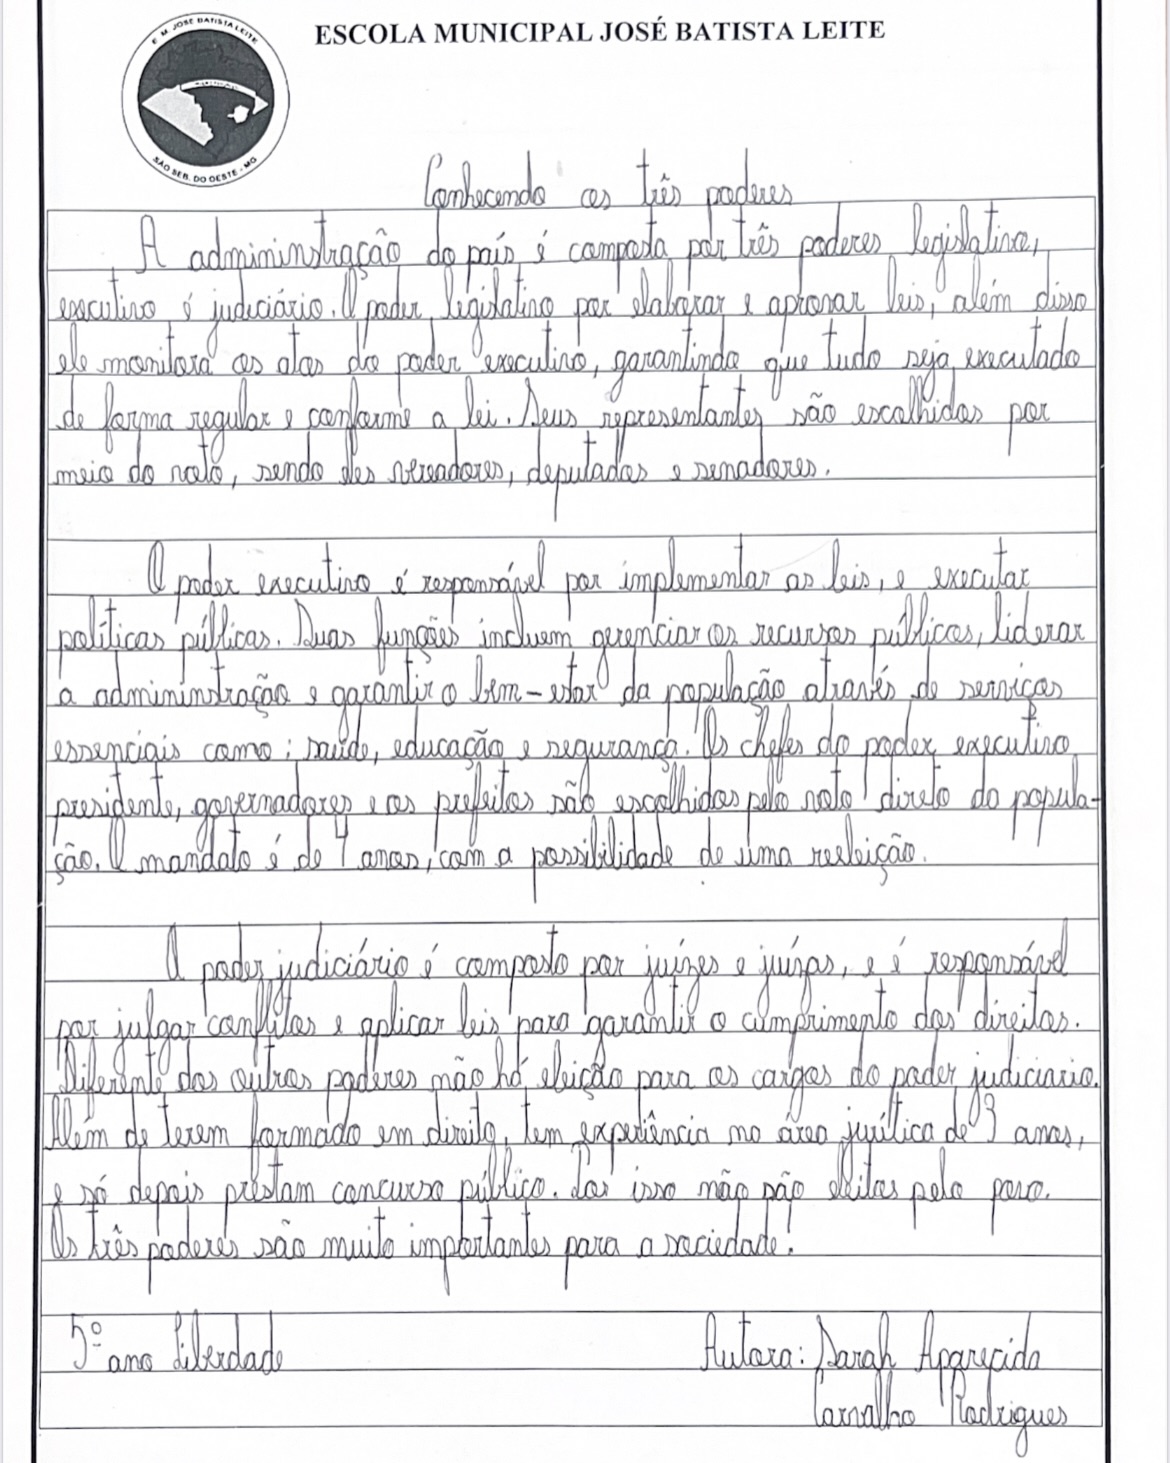 E. M. JOSE BATISTA LEITE
SÃO SEB. DO OESTE - MG
ESCOLA MUNICIPAL JOSÉ BATISTA LEITE
Conhecendo os três poderes
A admininstração do país é composta por três poderes legislativo,
executivo é judiciário. O poder legislativo por elaborar e aprovar leis, além disso
ele monitora os atos do poder executivo, garantindo que tudo seja executado
de forma regular e conforme a lei. Seus representantes são escolhidos por
meio do voto, sendo eles vereadores, deputados e senadores.
O poder executivo é responsável por implementar as leis, e executar
políticas públicas. Suas funções incluem gerenciar os recursos públicos, liderar
a admininstração e garantir o bem-estar da população através de serviços
essenciais como: saúde, educação e segurança. Os chefes do poder executivo
presidente, governadores e os prefeitos são escolhidos pelo voto direto do popula-
ção. O mandato é de 4 anos, com a possibilidade de uma reeleição.
O poder judiciário é composto por juízes e juízas, e é responsável
por julgar conflitos e aplicar leis para garantir o cumprimento dos direitos.
Diferente dos outros poderes não há eleição para os cargos do poder judiciario.
Além de terem formado em direito, tem experiência no área jurítica de 3 anos,
e só depois prestam concurso público. Por isso não são eleitos pelo povo.
Os três poderes são muito importantes para a sociedade!
5º ano Liberdade
Autora: Sarah Aparecida
Carvalho Rodrigues